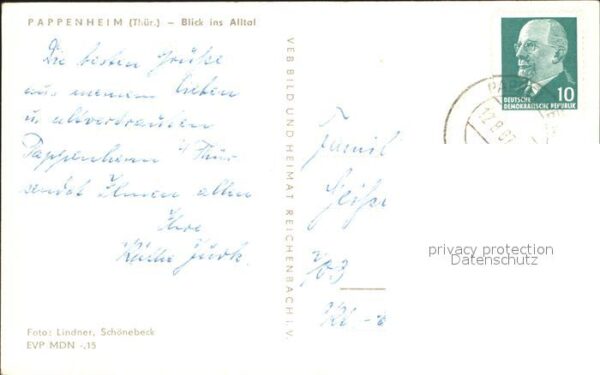 PAPPENHEIM (Thür.) – Blick ins Alltal
Die besten Grüße
aus meinem lieben
u. altvertrauten
Pappenheim i/Thür
sendet Ihnen allen
Ihre
Käthe
Foto: Lindner, Schönebeck
EVP MDN -,15
VEB BILD UND HEIMAT REICHENBACH i. V.
10
DEUTSCHE
DEMOKRATISCHE REPUBLIK
PAP
12.8.6
Familie
703
privacy protection
Datenschutz